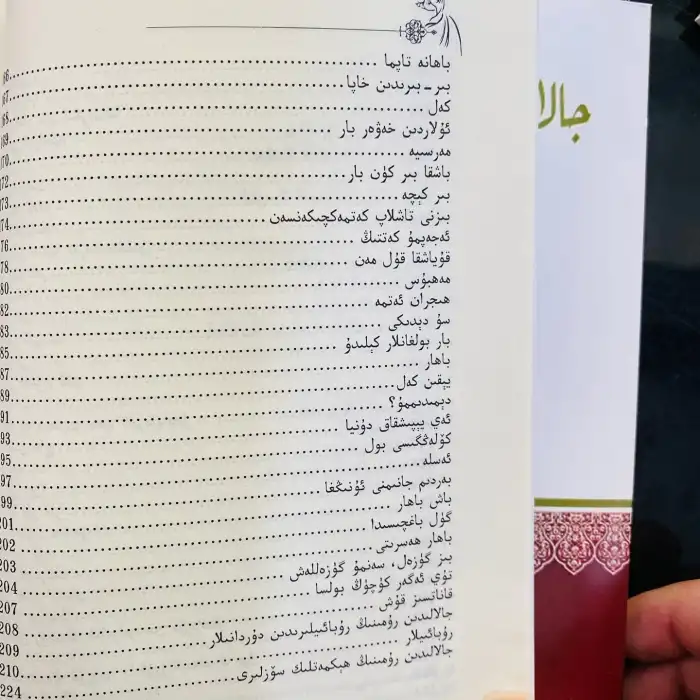 باھانە تاپما ........ 66
بىر - بىرىدىن خاپا ........ 67
كەل ........ 68
ئۇلاردىن خەۋەر بار ........ 69
مەرسىيە ........ 70
باشقا بىر كۈن بار ........ 72
بىر كېچە ........ 73
بىزنى تاشلاپ كەتمەكچىكەنسەن ........ 74
ئەجەپمۇ كەتتىڭ ........ 76
قۇياشقا قۇل مەن ........ 78
مەھبۇس ........ 80
ھىجران ئەتمە ........ 82
سۇ دېدىكى ........ 83
بار بولغانلار كېلىدۇ ........ 85
باھار ........ 87
يېقىن كەل ........ 89
دېمىدىممۇ؟ ........ 91
ئەي يېپىشقاق دۇنيا ........ 93
كۆلەڭگىسى بول ........ 95
ئەسلە ........ 97
بەردىم جانىمنى ئۇنىڭغا ........ 99
باش باھار ........ 201
گۈل باغچىسىدا ........ 202
باھار ھەسرىتى ........ 203
بىز گۈزەل، سەنمۇ گۈزەللەش ........ 204
تۇي ئەگەر كۈچۈڭ بولسا ........ 207
قاناتسىز قۇش ........ 208
جالالىدىن رۇمىنىڭ رۇبائىيلىرىدىن دۇردانىلار ........ 209
رۇبائىيلار ........ 210
جالالىدىن رۇمىنىڭ ھېكمەتلىك سۆزلىرى ........ 224
جالا